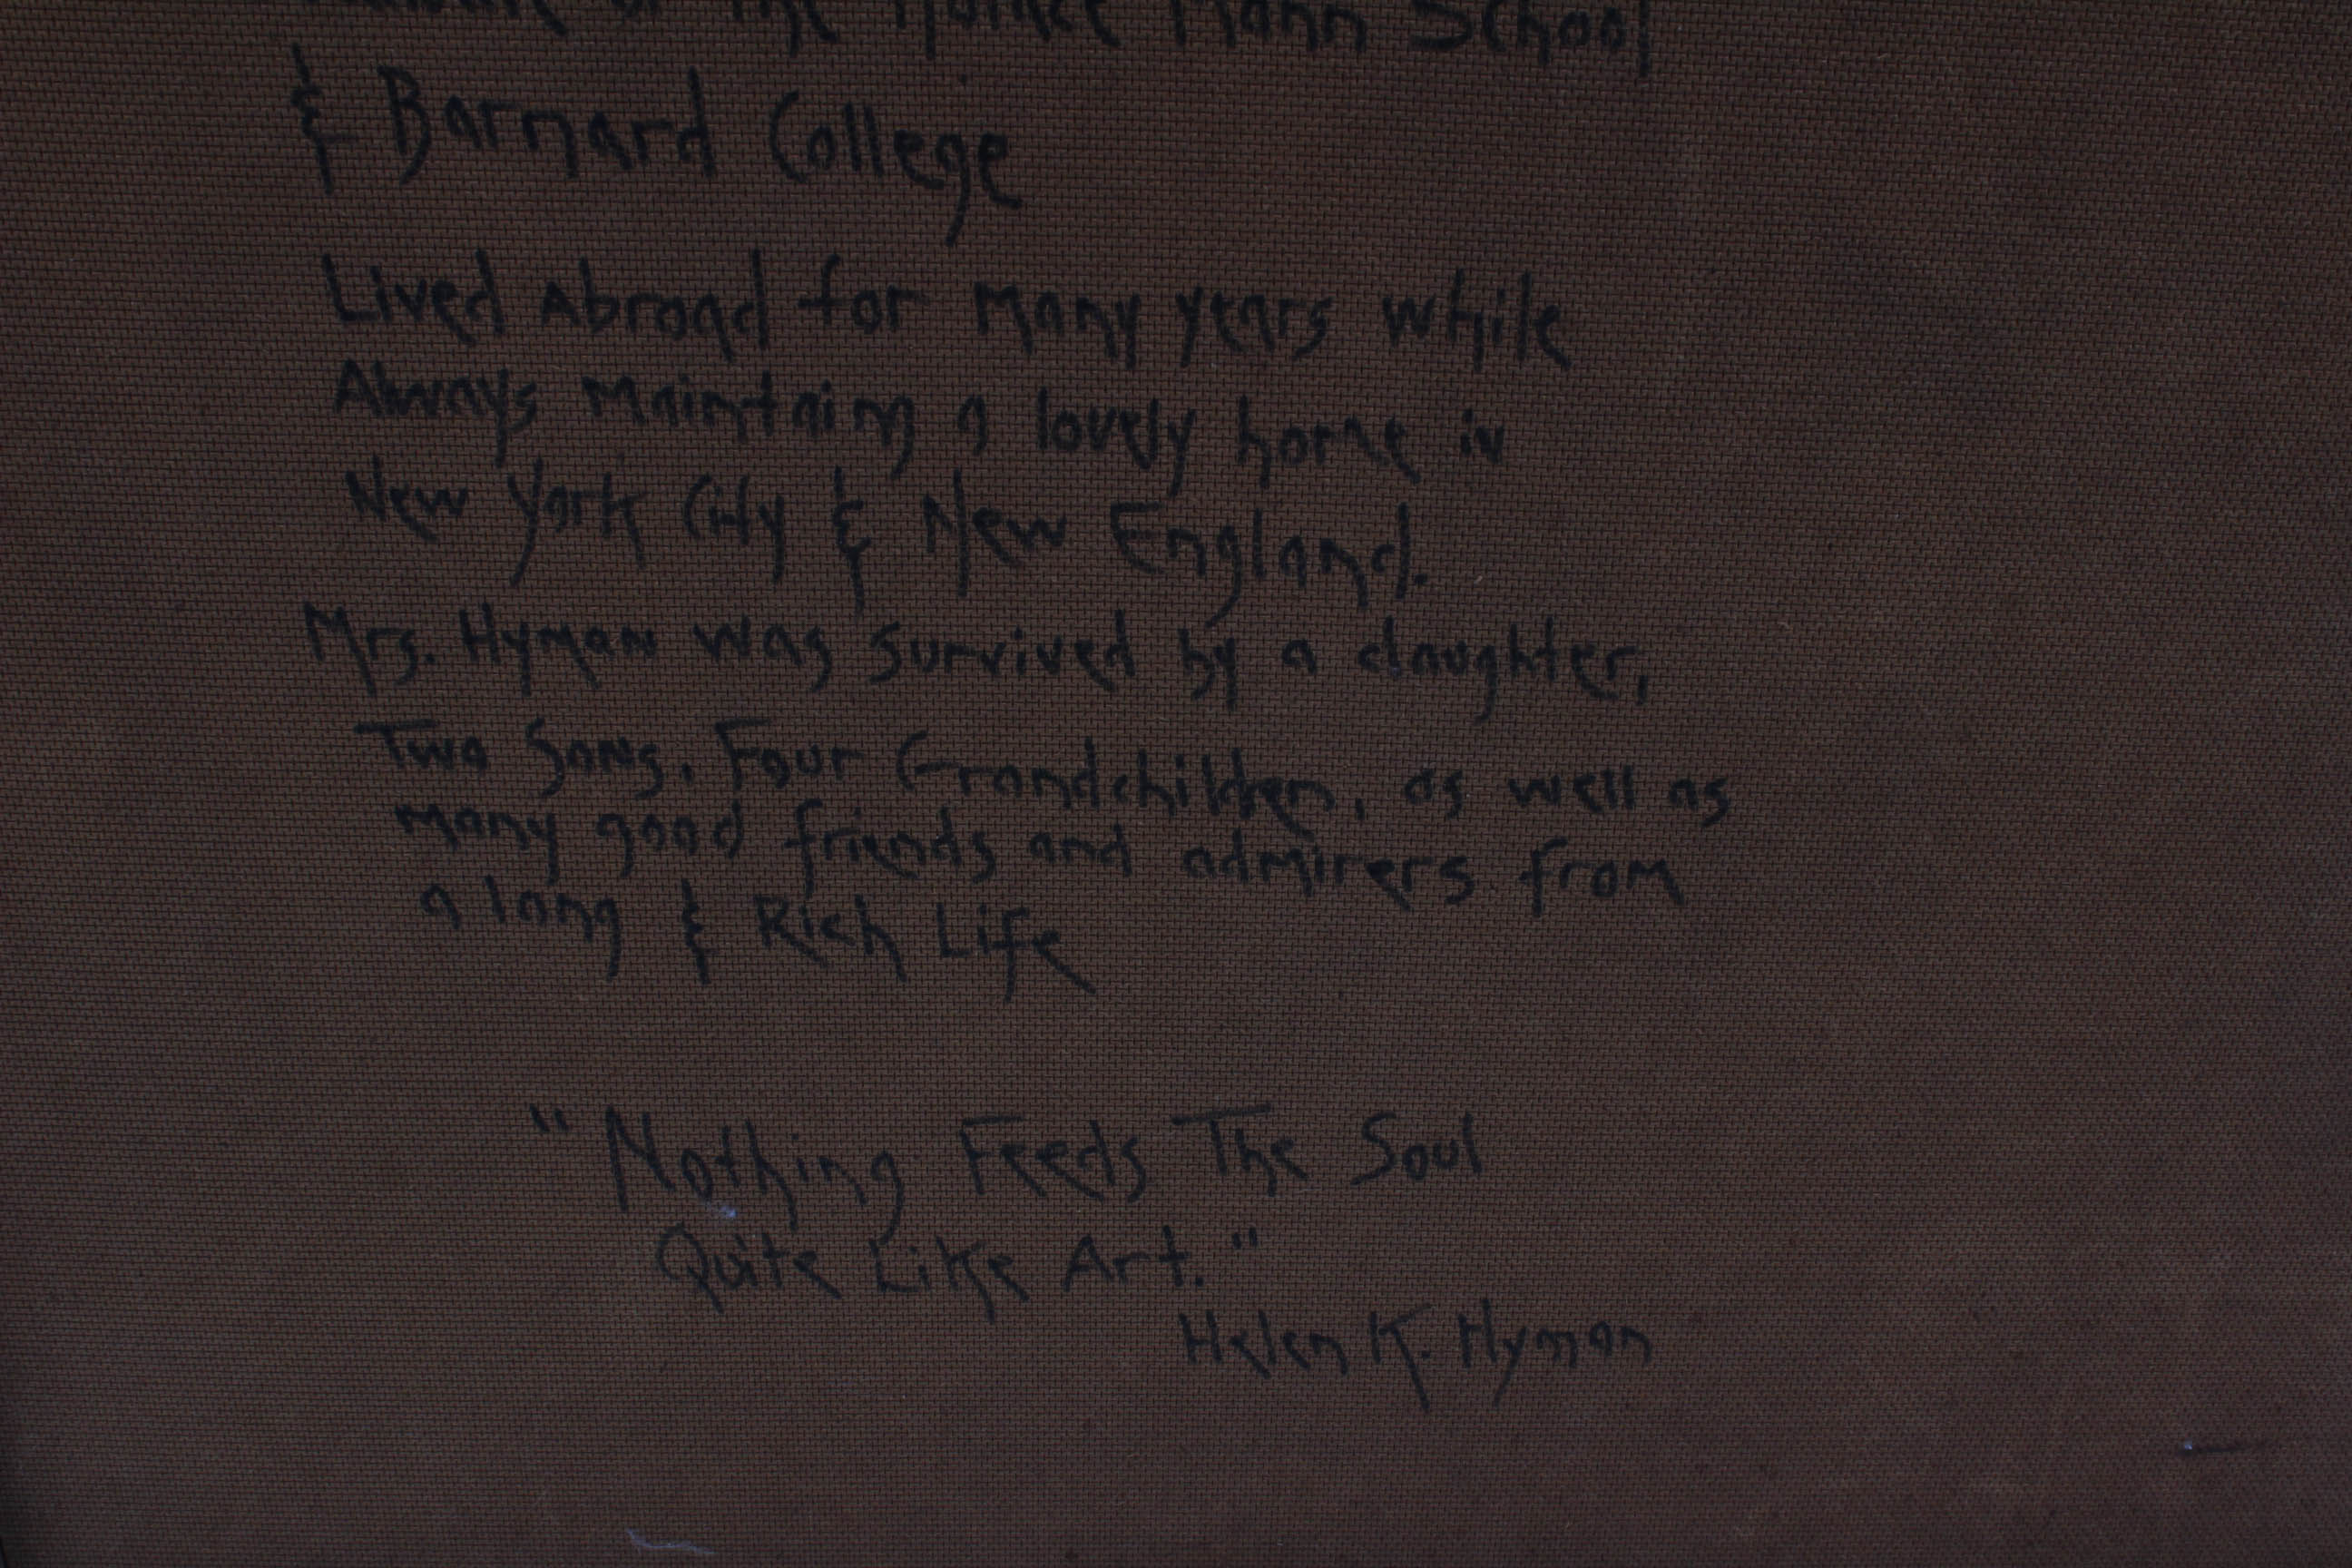 of the Horace Mann School
& Barnard College
Lived Abroad for many years while
Always maintaing a lovely home in
New York City & New England.
Mrs. Hyman was survived by a daughter,
Two Sons, Four Grandchildren, as well as
many good friends and admirers from
a long & Rich Life
"Nothing Feeds The Soul
Quite Like Art."
Helen K. Hyman